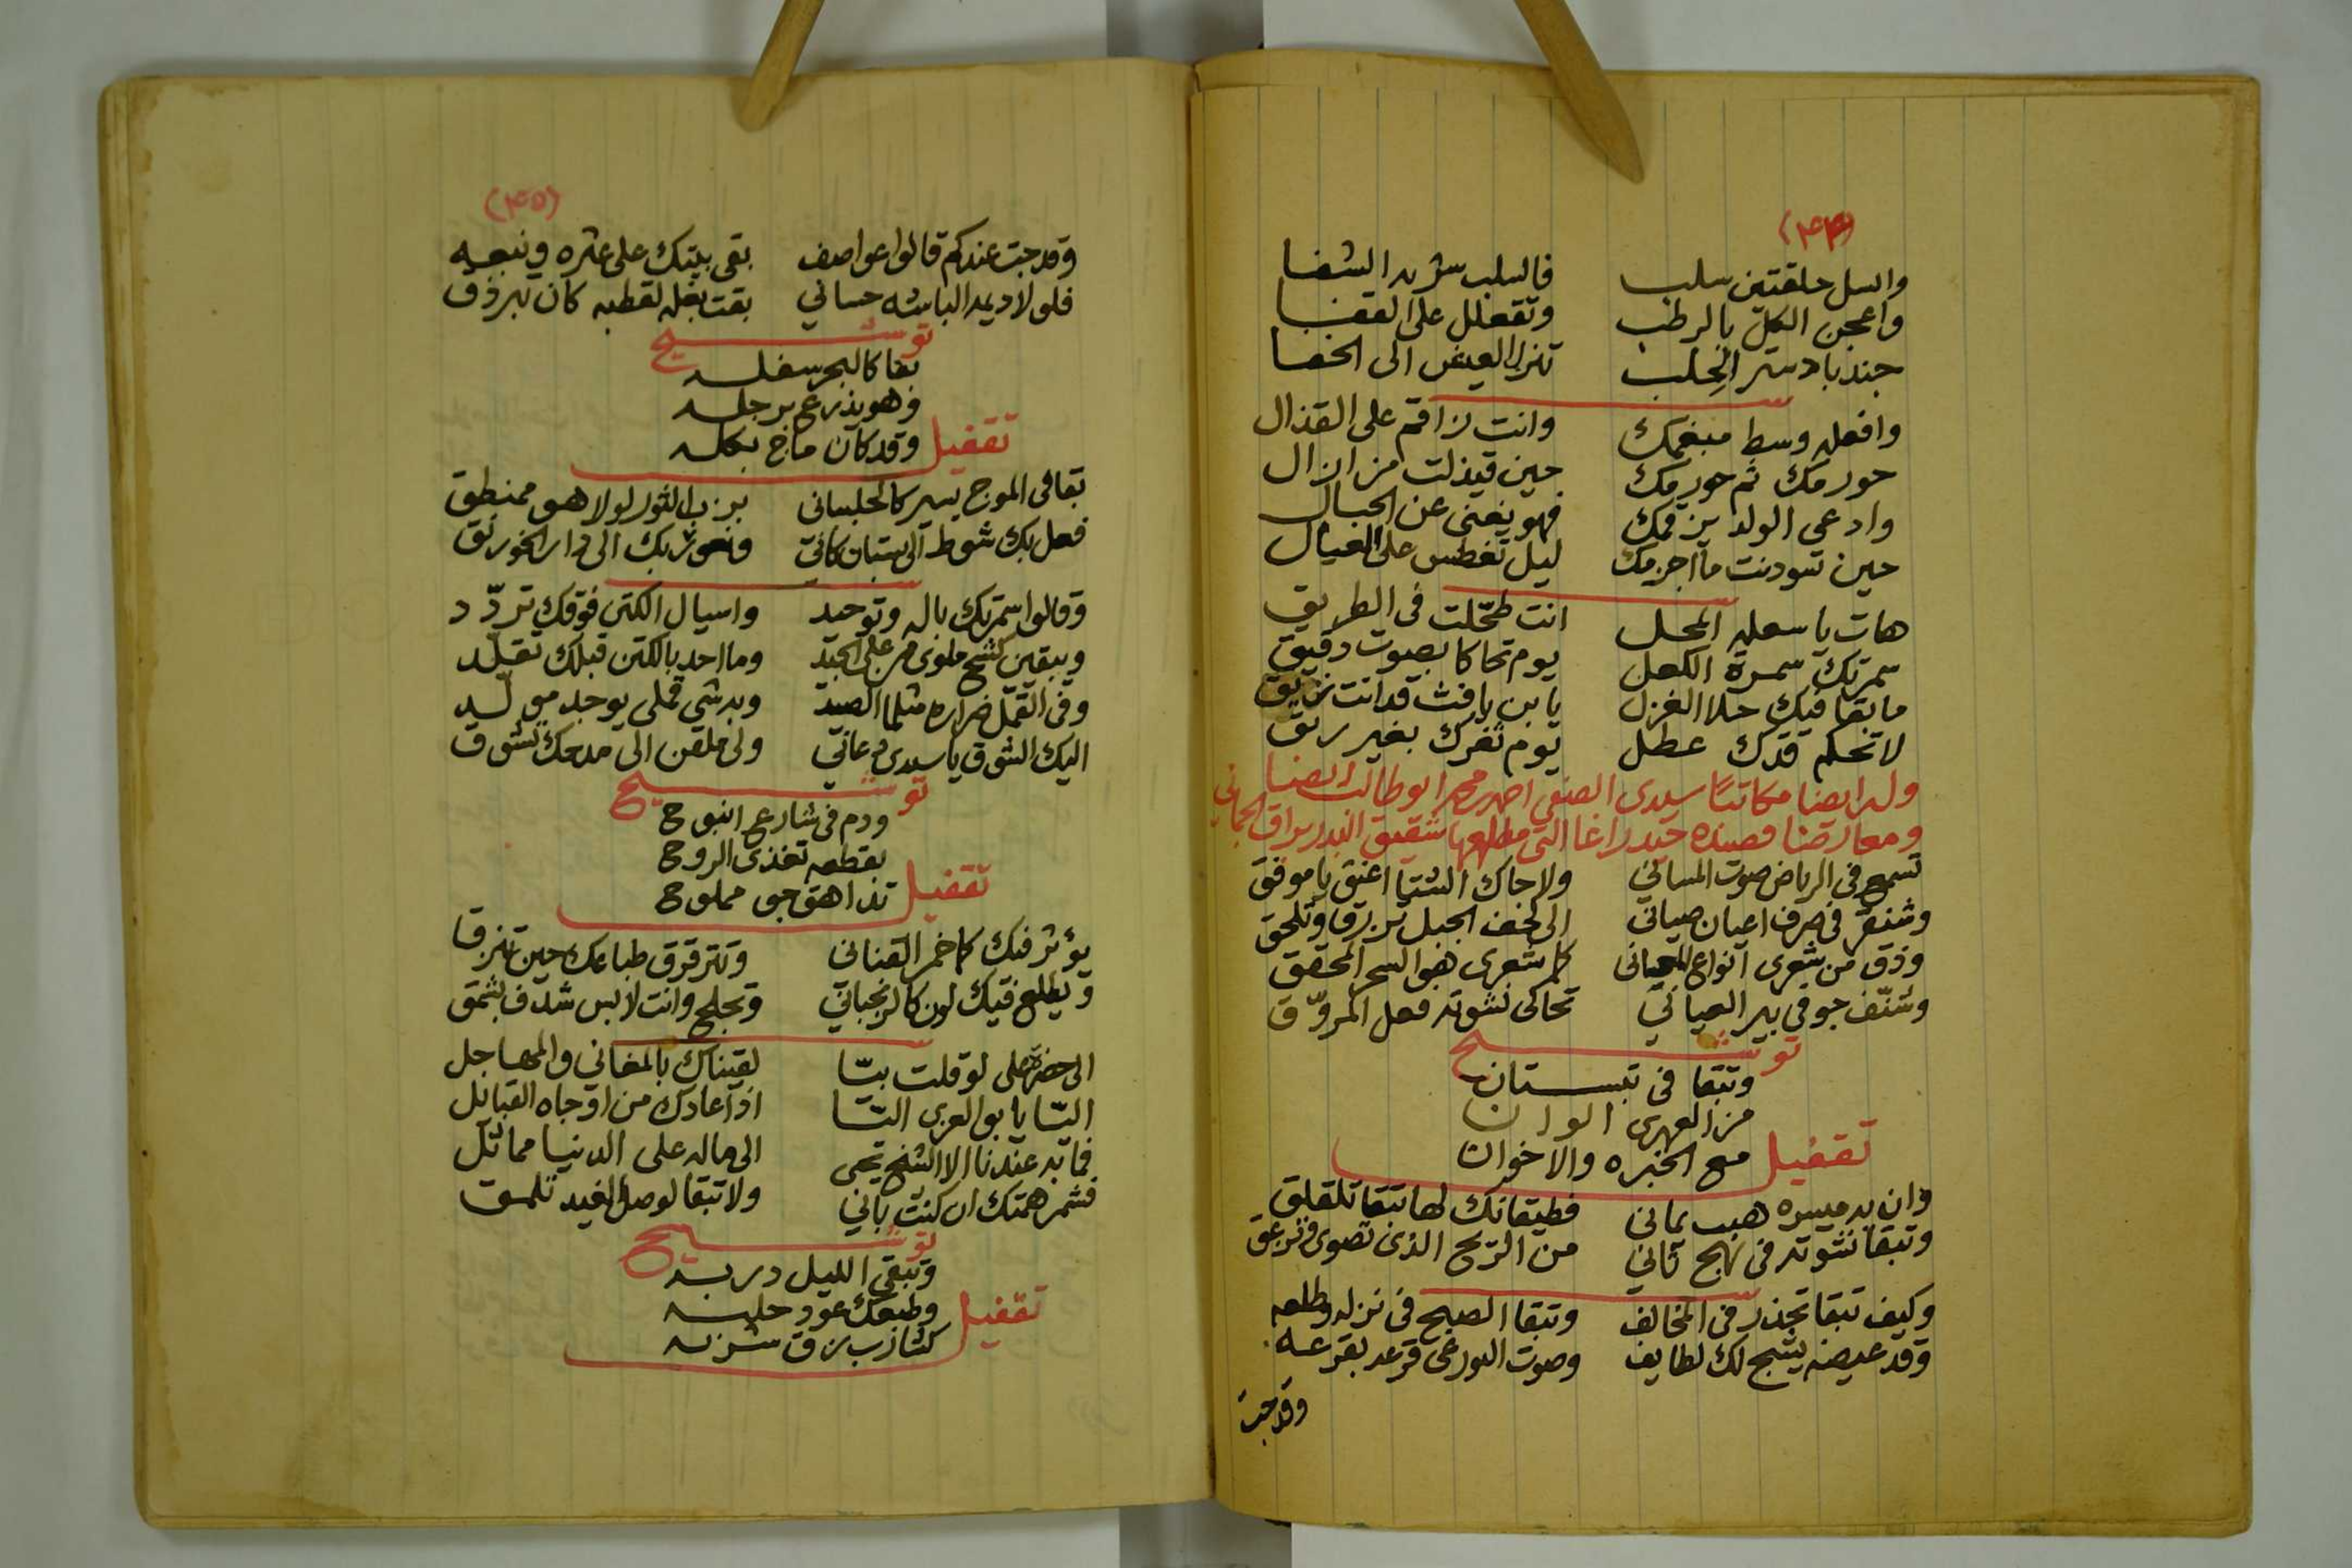 (٤٤)
والسل حلقتين سلب فالسلب سربه الشفا
واعجن الكل بالرطب وتقعلل على القفا
جند بادستر الخلب تنزل العيض الى الخفا
وافعله وسط مبغمك وانت زاقم على القذال
حورمك ثم حورمك حين قيذلت من ازال
وادعي الولد يزقمك فهو يغنى عن الحبال
حين تسودنت ما اجرمك ليل تغطس على العيال
هات يا سعله المحل انت طحلت في الطريق
سمرتك سمرة الكعل يوم تحاكا بصوت دقيق
ما بقا فيك حلا الغزل يا بن يافث قد انت
لا تحكم قدك عطل يوم ثغرك بغير ريق
وله ايضا مكاتبا سيدي الصفي احمد محمد ابو طالب ايضا
ومعارضا قصيدة حيدر اغا التي مطلعها شقيق البدر براق الجماني
تسمع في الرياض صوت المساني ولا جاك الشتا اعنق يا موفق
في صرف اعيان صياني الى لحف الجبل تبرق وتلحق
وذق من شعري انواع المعاني كم شعري هو السحر المحقق
وشنف جوفي بير العياني تحاكي نشوته فعل المروّق
توشيح
وتبقا في تبستان
من العهري الوان
تقفيل
مع الخبره والاخوان
وان به ميسره هبب يماني فطيقانك لها تبقا تلقلق
وتبقا نشوته في نهج ثاني من الريح الذي تصوي وتزعق
وكيف تبقا تجذر في المخالف وتبقا الصبح في نزله وطلعه
وقد عيصه يشج لك لطايف وصوت البورعي قرعه بقرعه
وقد جيت
(٤٥)
وقد جيت عندكم قالوا عواصف بقى بيتك على عثره ونبعه
فلولا ديمه الباشه حساني بقت بغله لقطبه كان تبرذق
توشيح
بقا كالبحر سفله
وهو يذرع برجله
تقفيل
وقد كان ماج بكله
بقا في الموج يسير كالحلبساني بزب الثور لولا هو ممنطق
فعل بك شوط الى بستان كاني ونحو ثربك الى دار الخورنق
وقالوا سمرتك باله وتوحيد واسيال الكتن فوقك تردّد
ويبقين كشح ملوى مر على الجيد وما احد بالكتن قبلك تقلّد
وفي القمل ضراره مثلما الصيد وبه شي قملي يوجد مولّد
اليك الشوق يا سيدي دعاني ولي ملقن الى مدحك تشوق
توشيح
ودم في شارع النبوح
بقطعه تغذي الروح
تقفيل
تذا هق جو مملوح
يؤثر فيك كما خمر القناني وتترقرق طباعك حين تنزقا
ويطلع فيك لون كالزنجباني وتجلح وانت لابس شدف يشمق
الى حضرة على لو قلت بيتا لقيناك بالمغاني والمهاجل
التا يا بو العربي التا اذا عادك من اوجاه القبائل
فما به عندنا الا الشيخ يحي الى ماله على الدنيا مماثل
فشمر همتك ان كنت باني ولا تبقا لوصل الغيد تلمق
توشيح
وتبقى الليل دربه
وطبعك عود حلبه
تقفيل
كثارب زق شربه